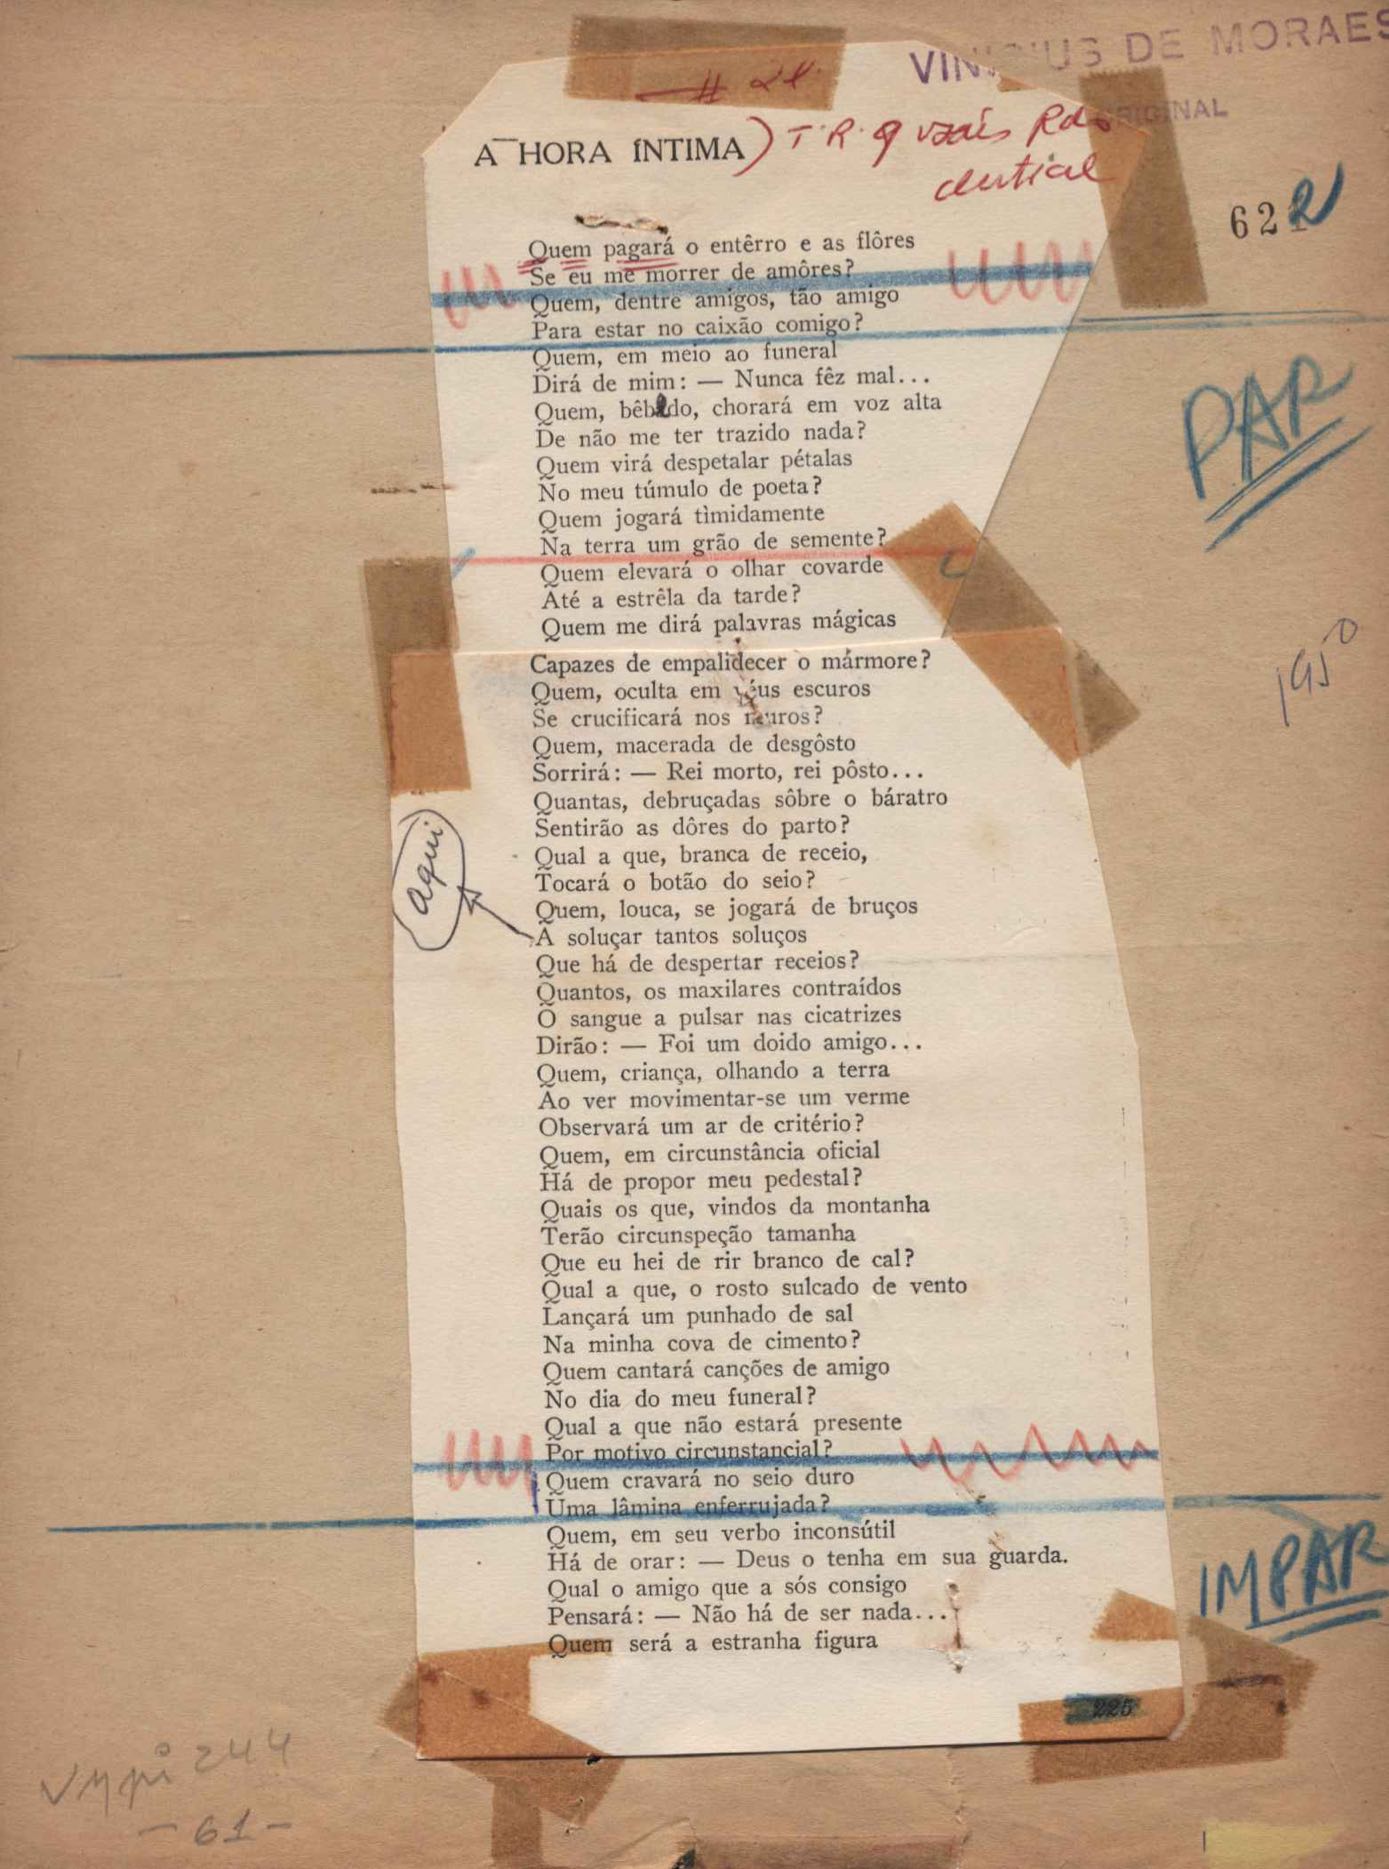 VINICIUS DE MORAES
ORIGINAL
# 21
A HORA ÍNTIMA) T.R.
622
Quem pagará o entêrro e as flôres
Se eu me morrer de amôres?
Quem, dentre amigos, tão amigo
Para estar no caixão comigo?
Quem, em meio ao funeral
Dirá de mim: — Nunca fêz mal...
Quem, bêbedo, chorará em voz alta
De não me ter trazido nada?
PAR
Quem virá despetalar pétalas
No meu túmulo de poeta?
Quem jogará tìmidamente
Na terra um grão de semente?
Quem elevará o olhar covarde
Até a estrêla da tarde?
Quem me dirá palavras mágicas
Capazes de empalidecer o mármore?
1950
Quem, oculta em véus escuros
Se crucificará nos muros?
Quem, macerada de desgôsto
Sorrirá: — Rei morto, rei pôsto...
Quantas, debruçadas sôbre o báratro
Sentirão as dôres do parto?
Qual a que, branca de receio,
Tocará o botão do seio?
aqui
Quem, louca, se jogará de bruços
A soluçar tantos soluços
Que há de despertar receios?
Quantos, os maxilares contraídos
O sangue a pulsar nas cicatrizes
Dirão: — Foi um doido amigo...
Quem, criança, olhando a terra
Ao ver movimentar-se um verme
Observará um ar de critério?
Quem, em circunstância oficial
Há de propor meu pedestal?
Quais os que, vindos da montanha
Terão circunspeção tamanha
Que eu hei de rir branco de cal?
Qual a que, o rosto sulcado de vento
Lançará um punhado de sal
Na minha cova de cimento?
Quem cantará canções de amigo
No dia do meu funeral?
Qual a que não estará presente
Por motivo circunstancial?
Quem cravará no seio duro
Uma lâmina enferrujada?
Quem, em seu verbo inconsútil
Há de orar: — Deus o tenha em sua guarda.
IMPAR
Qual o amigo que a sós consigo
Pensará: — Não há de ser nada...
Quem será a estranha figura
225
244
- 61 -